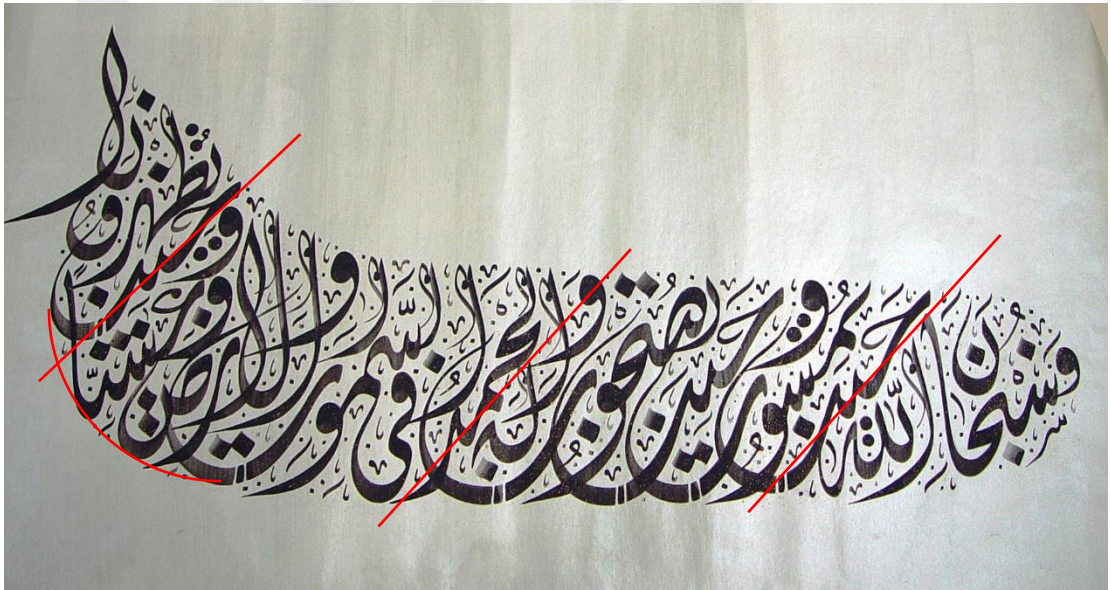 فسبحان الله حين تمسون وحين تصبحون وله الحمد في السموات والارض وعشيا وحين تظهرون